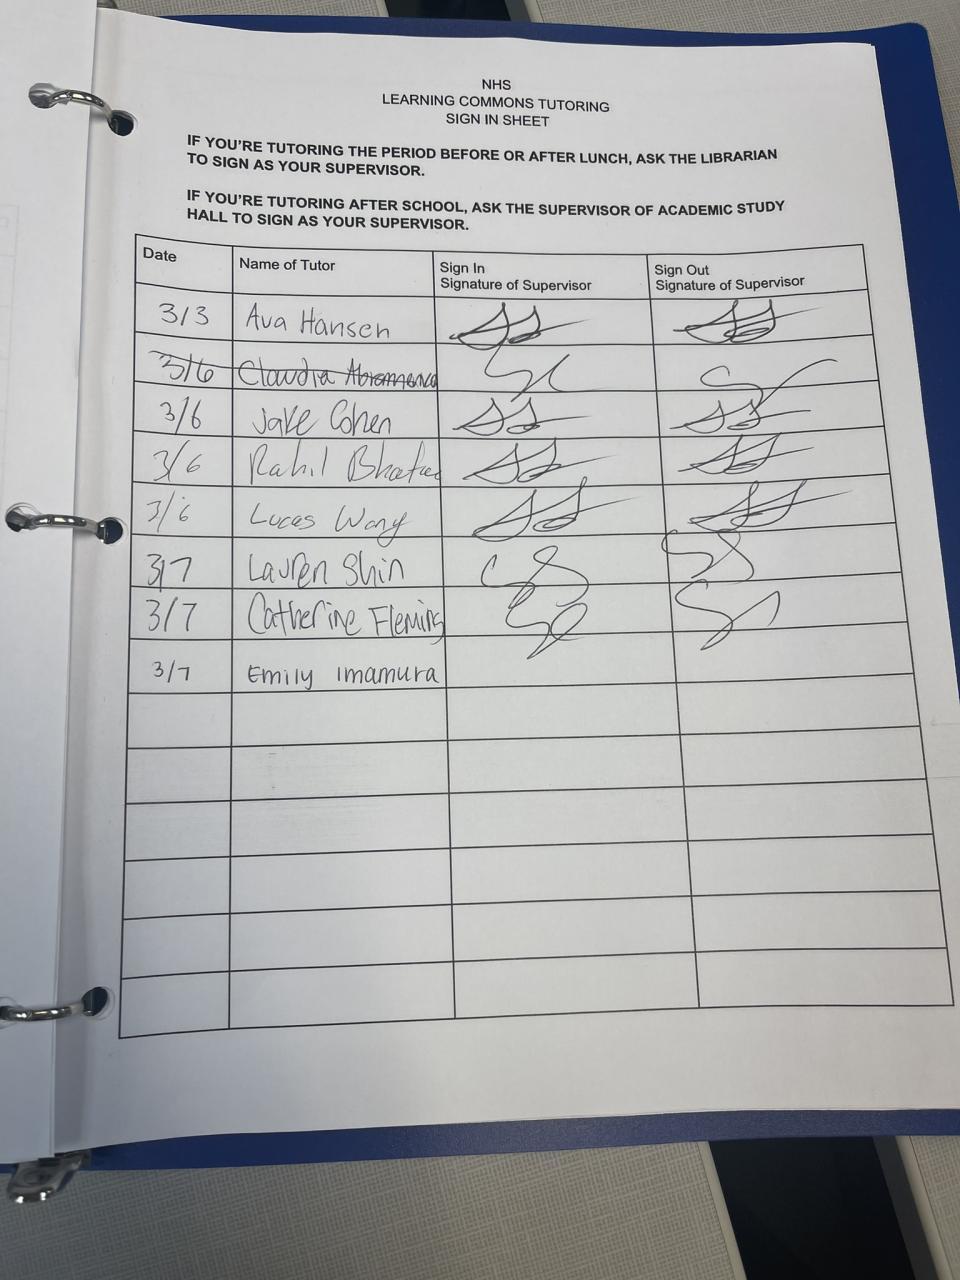 NHS
LEARNING COMMONS TUTORING
SIGN IN SHEET
IF YOU'RE TUTORING THE PERIOD BEFORE OR AFTER LUNCH, ASK THE LIBRARIAN
TO SIGN AS YOUR SUPERVISOR.
IF YOU'RE TUTORING AFTER SCHOOL, ASK THE SUPERVISOR OF ACADEMIC STUDY
HALL TO SIGN AS YOUR SUPERVISOR.
Date Name of Tutor Sign In Sign Out
Signature of Supervisor Signature of Supervisor
3/3 Ava Hansen
3/6 Claudia
3/6 Jake Cohen
3/6 Rahil
3/6 Lucas Wang
3/7 Lauren Shin
3/7 Catherine Fleming
3/7 Emily Imamura